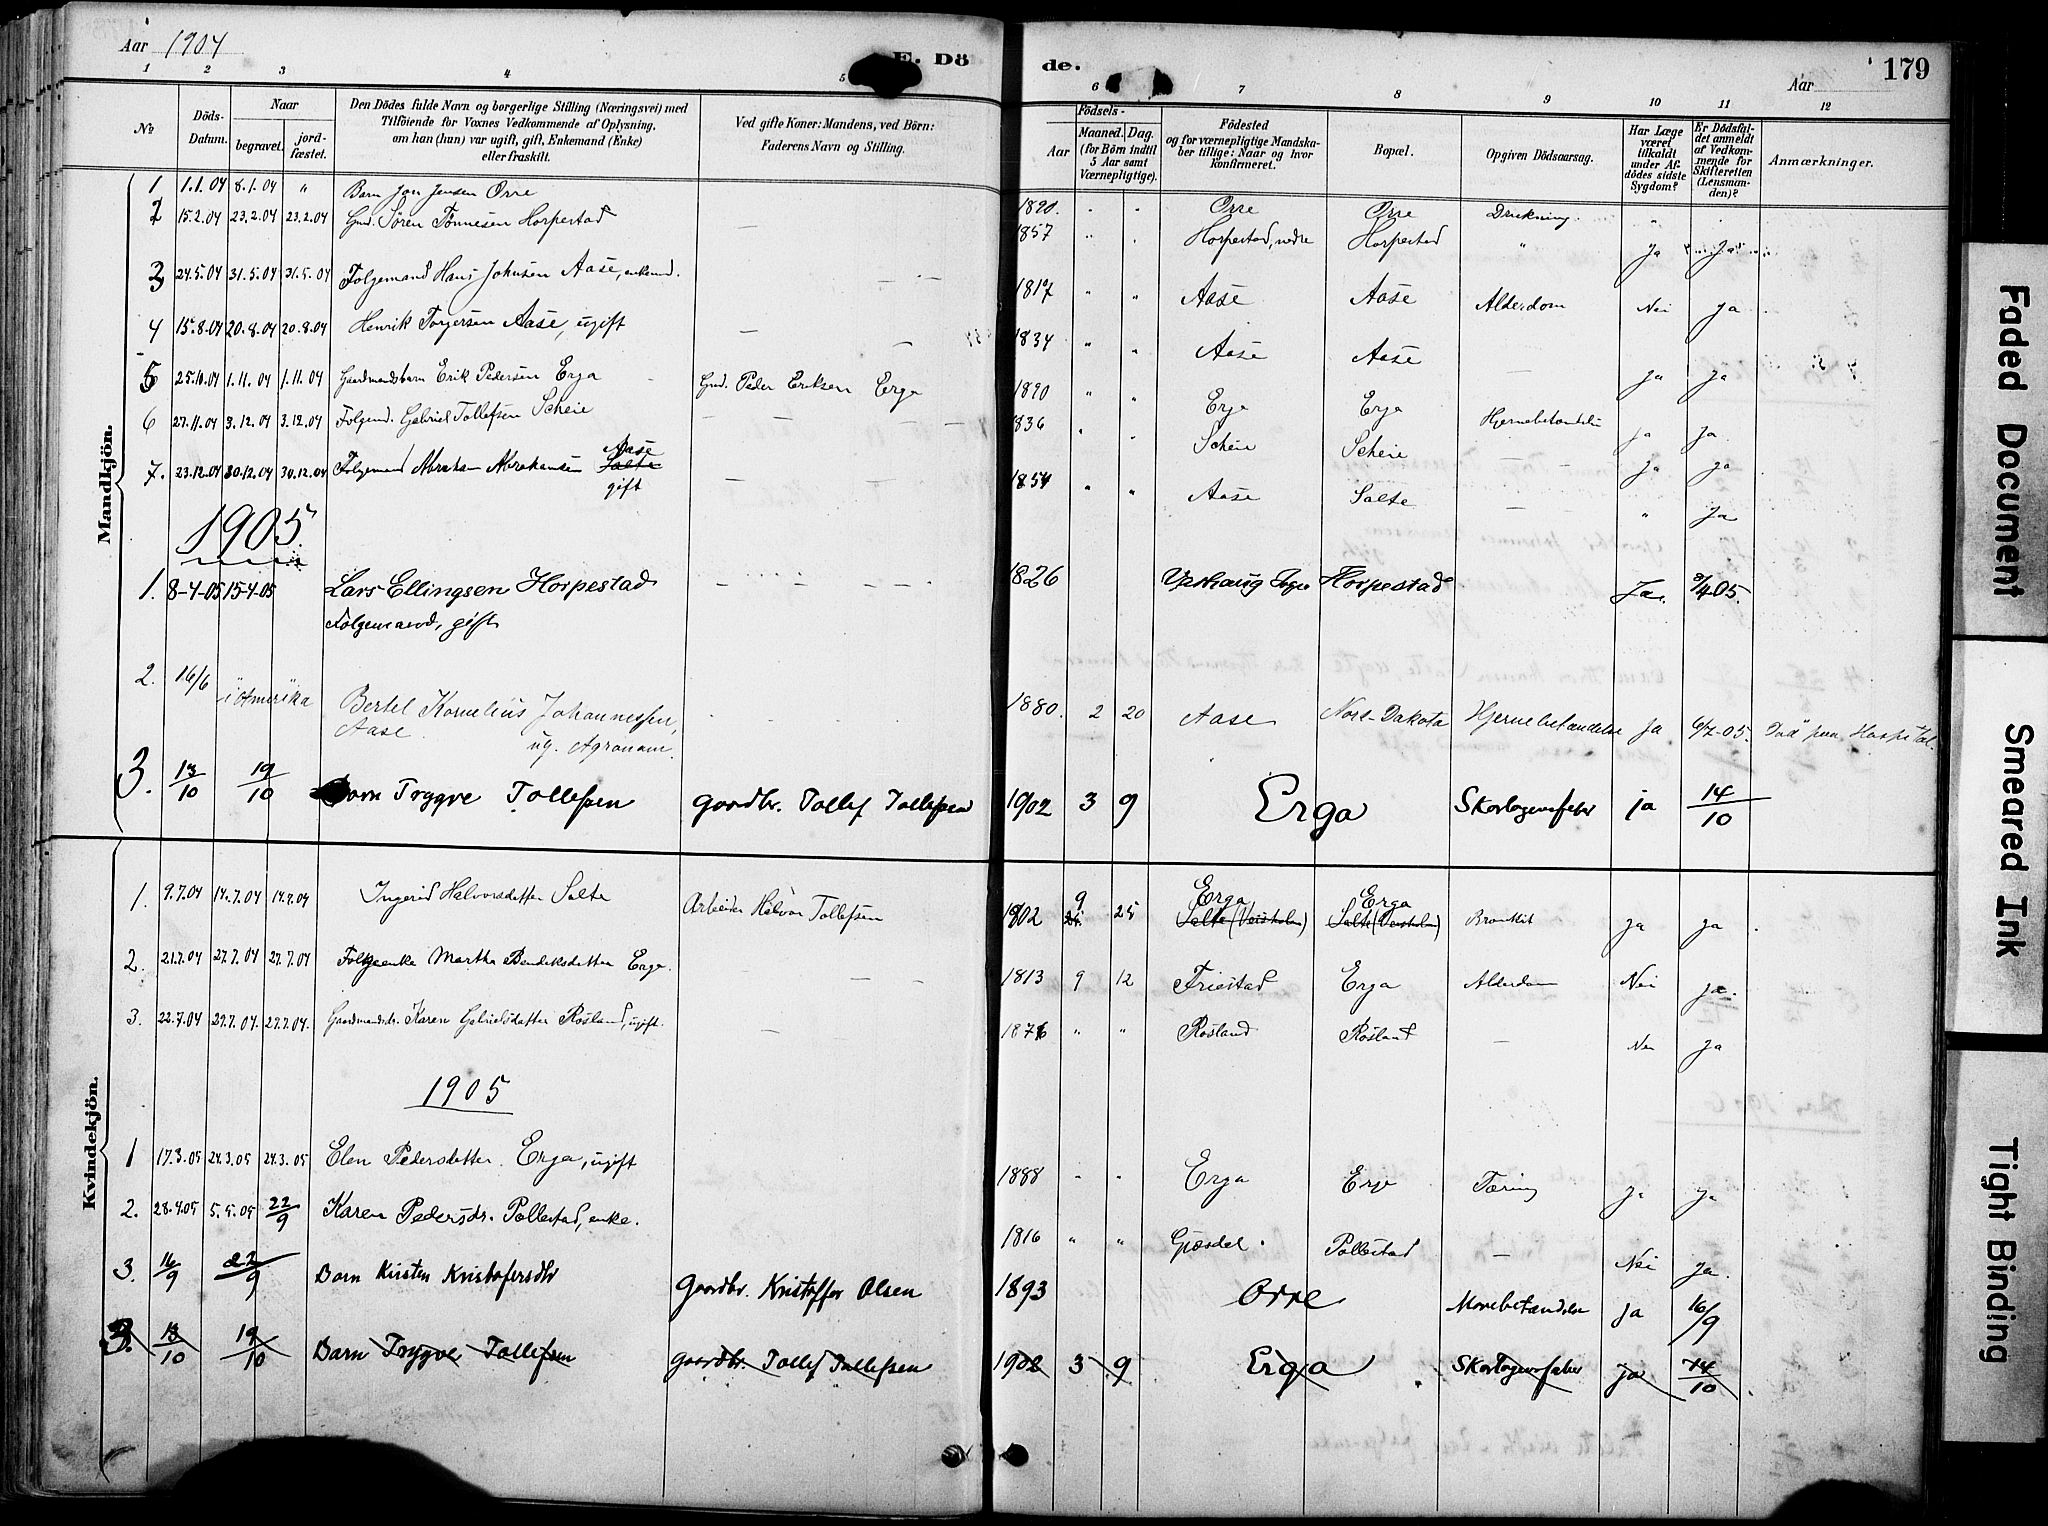 Aar 1904 E. Dö de. Aar 179
1 2 3 4 5 6 7 8 9 10 11 12
№ Döds-Datum. Naar begravet. jordfæstet. Den Dödes fulde Navn og borgerlige Stilling (Næringsvei) med Tilföiende for Voxnes Vedkommende af Oplysning, om han (hun) var ugift, gift, Enkemand (Enke) eller fraskilt. Ved gifte Koner: Mandens, ved Börn: Faderens Navn og Stilling. Aar Födsels- Maaned. Dag. (for Börn indtil 5 Aar samt Værnepligtige). Födested og for værnepligtige Mandskaber tillige: Naar og hvor konfirmeret. Bopæl. Opgiven Dödsaarsag. Har Læge været tilkaldt under Afdödes sidste Sygdom? Er Dödsfaldet anmeldt af Vedkommende for Skifteretten (Lensmanden)? Anmærkninger.
Mandkjön.
1 1.1.04 8.1.04 " Barn Jon Jensen Orre 1890. " " Orre Orre Drukning. "
2 15.2.04 23.2.04 23.2.04 Gmd. Sören Tönnesen Horpestad — 1857 " " Horpestad, nedre Horpestad " Ja Ja
3 24.5.04 31.5.04 31.5.04 Folgemand Hans Johnsen Aase, enkemd. — — 1817 " " Aase Aase Alderdom Nei Ja
4 15.8.04 20.8.04 20.8.04 Henrik Torgersen Aase, ugift — — 1834 " " Aase Aase — Ja Ja
5 25.10.04 1.11.04 1.11.04 Gaardmandsbarn Erik Pedersen Erga Gmd. Peder Eriksen Erga 1890 " " Erga Erga Hjernebetændelse ja Ja
6 27.11.04 3.12.04 3.12.04 Folgemd. Gabriel Tollefsen Scheie — — — — 1836 " " Scheie Scheie — Ja Ja
7. 23.12.04 30.12.04 30.12.04 Folgemand Abraham Abrahamsen Salte Aase — — — 1854 " " Aase Salte — " Ja
gift
1905.
1. 8-4-05 15-4-05 Lars Ellingsen Horpestad — — — — — 1826 Varhaug Sogn Horpestad Ja. 9/4-05.
Folgemand, gift
2. 16/6 i Amerika Bertel Kornelius Johannessen, 1880. 2 20 Aase Nort-Dakota Hjernebetændelse Ja 6/7-05. Död paa Hospital.
Aase. ug. Agronom.
3. 13/10 19/10 Barn Trygve Tollefsen Gaardbr. Tollef Tollefsen 1902 3 9 Erga Skarlagensfeber ja 14/10
Kvindekjön.
1. 9.7.04 14.7.04 14.7.04 Ingerid Halvorsdatter Salte Arbeider Halvor Tollefsen 1902 9 25 Erga Salte (Veisholm) Erga Salte (Veisholm) Bronkit Ja Ja
2. 21.7.04 27.7.04 27.7.04 Folgeenke Martha Bendiksdatter Erga. — — 1813 9 12 Friestad Erga Alderdom Nei Ja.
3. 22.7.04 27.7.04. 27.7.04. Gaardmandsdr. Karen Gabrielsdatter Rosland, ugift. — 1876 " " Rosland Rosland — Nei Ja
1905
1 17.3.05 24.3.05 24.3.05 Elen Pedersdatter Erga, ugift 1888 " " Erga Erga Tæring Ja Ja
2. 28.4.05 5.5.05 22/9 Karen Pedersdr. Pollestad, enke. 1816 " " Gjæsdal. Pollestad — Nei Ja.
3. 16/9 22/9 Barn Kirsten Kristofersdtr Gaardbr. Kristoffer Olsen 1893 Orre Mavebetændelse Ja 16/9
3. 13/10 19/10 Barn Trygve Tollefsen Gaardbr. Tollef Tollefsen 1902 3 9. Erga Skarlagensfeber ja 14/10.
Faded Document
Smeared Ink
Tight Binding